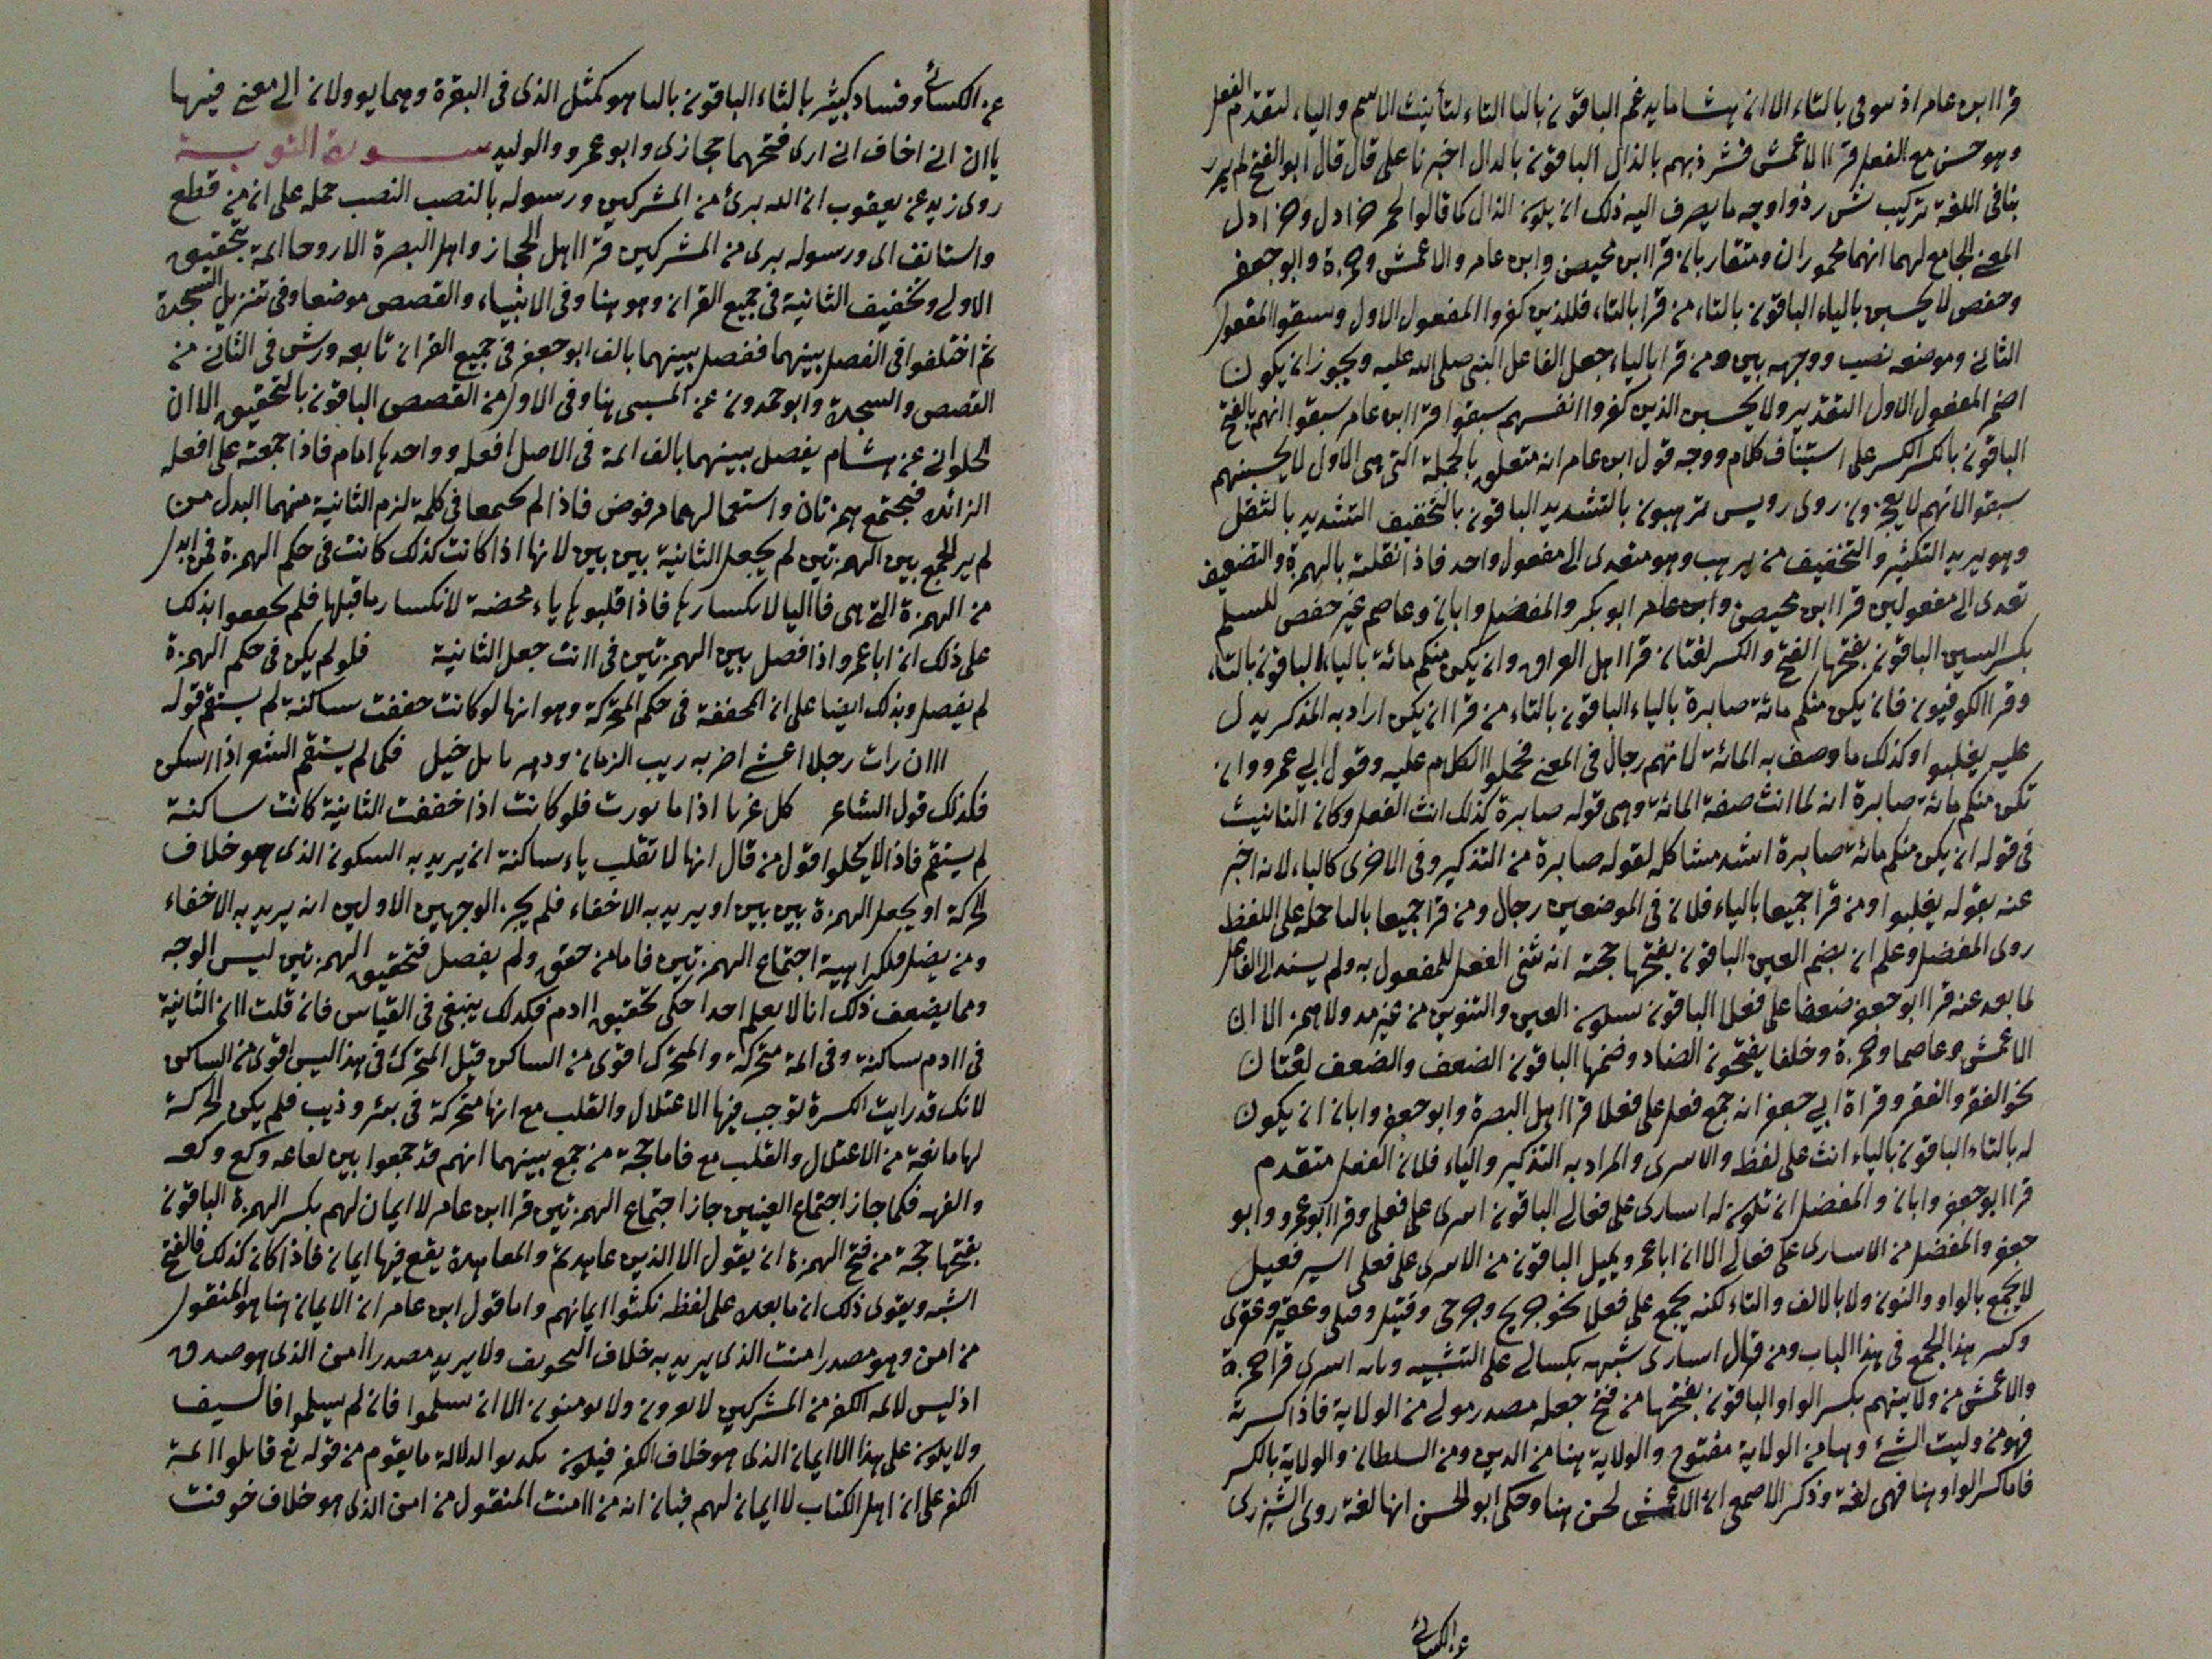 قرا ابن عامر اذ سوفى بالتاء الا ان هشاما يدغم الباقون باليا التاء لتأنيث الاسم والياء لتقدم الفعل
وهو حسن مع الفعل قرا الاعمش فشرذ بهم بالذال الباقون بالدال اخبرنا على قال قال ابو الفتح لم يمرر
بنا فى اللغة تركيب شرذ واوجه ما يصرف اليه ذلك ان يكون الذال كما قالوا لحم خرادل وخراذل
المعنى الجامع لهما انهما مجهوران ومتقاربان قرا ابن محيصن وابن عامر والاعمش وحمزة وابو جعفر
وحفص لا يحسبن بالياء الباقون بالتاء من قرا بالتاء فللذين كفروا المفعول الاول وسبقوا المفعول
الثانى وموضعه نصب ووجهه بين ومن قرا بالياء جعل الفاعل النبى صلى الله عليه ويجوز ان يكون
اضمر المفعول الاول التقدير ولا يحسبن الذين كفروا انفسهم سبقوا قرا ابن عامر سبقوا انهم بالفتح
الباقون بالكسر الكسر على استيناف كلام ووجه قول ابن عامر انه متعلق بالجملة التى هى الاول لا يحسبنهم
سبقوا لانهم لا يعجزون روى رويس ترهبون بالتشديد الباقون بالتخفيف التشديد بالثقل
وهو يريد التكثير والتخفيف من يرهب وهو متعدى الى مفعول واحد فاذا نقلته بالهمزة والتضعيف
تعدى الى مفعولين قرا ابن محيصن وابن عامر ابو بكر والمفضل وابان وعاصم غير حفص للسلم
بكسر السين الباقون بفتحها الفتح والكسر لغتان قرا اهل العراق وان يكن منكم مائة بالياء الباقون بالتاء
وقرا الكوفيون فان يكن منكم مائة صابرة بالياء الباقون بالتاء من قرا ان يكن اراد به المذكر يدل
عليه يغلبوا وكذلك ما وصف به المائة لانهم رجال فى المعنى فحملوا الكلام عليه وقول ابى عمرو وان
تكن منكم مائة صابرة انه لما انث صفة المائة وهى قوله صابرة كذلك انث الفعل وكان التانيث
فى قوله ان يكن منكم مائة صابرة اشد مشاكله لقوله صابرة من التذكير وفى الاخرى كالياء لانه اخبر
عنه بقوله يغلبوا ومن قرا جميعا بالياء فلان فى الموضعين رجال ومن قرا جميعا بالتا حمله على اللفظ
روى المفضل وعلم ان بضم العين الباقون بفتحها حجته انه ثنى الفعل للمفعول به ولم يسند الى الفاعل
لما بعد عنه قرا ابو جعفر ضعفا على فعلا الباقون بسكون العين والتنوين من غير مد ولا همز الا ان
الاعمش وعاصما وحمزة وخلفا يفتحون الضاد وضمها الباقون الضعف والضعف لغتان
نحو الفقر والفقر وقراة ابى جعفر انه جمع فعل على فعلا قرا اهل البصرة وابو جعفر وابان ان يكون
له بالتاء الباقون بالياء انث على لفظ والاسرى والمراد به التذكير والياء فلان الفعل متقدم
قرا ابو جعفر وابان والمفضل ان تكون له اسارى على فعالى الباقون اسرى على فعلى وقرا ابو عمرو وابو
جعفر والمفضل من الاسارى على فعالى الا ان ابا عمرو يميل الباقون من الاسرى على فعلى اسير فعيل
لا يجمع بالواو والنون ولا بالالف والتاء لكنه يجمع على فعلى نحو جريح وجرحى وقتيل وقتلى وعقير وعقرى
وكسر هذا الجمع فى هذا الباب ومن قال اسارى شبهه بكسالى على التشبيه اسرى قرا حمزة
والاعمش من ولايتهم بكسر الواو الباقون بفتحها من فتح جعله مصدر مولى من الولاية فاذا كسرته
فهو من وليت الشئ وهنا من الولاية مفتوح والولاية هنا من الدين ومن السلطان والولاية بالكسر
فاما كسر الواو هنا فهى لغة وذكر الاصمعى ان الاعمش لحن هنا وحكى ابو الحسن انها لغة روى الشيزرى
عن الكسائى
عن الكسائى وفساد كبير بالثاء الباقون بالبا هو كمثل الذى فى البقرة وهما يوولان الى معنى فيها
ياان انى اخاف انى ارى فتحهما حجازى وابو عمرو والوليد سورة التوبة
روى زيد عن يعقوب ان الله برئ من المشركين ورسوله بالنصب النصب حمله على ان من قطع
واستانف اى ورسوله برى من المشركين قرا اهل الحجاز واهل البصرة الا روحا ائمة بتحقيق
الاولى وتخفيف الثانية فى جميع القران وهو هنا وفى الانبياء والقصص موضعا وفى تنزيل السجدة
ثم اختلفوا فى الفصل بينهما ففصل بينهما بالف ابو جعفر فى جميع القران تابعه ورش فى الثانى من
القصص والسجدة وابو حمدون عن المسيبى هنا وفى الاول من القصص الباقون بالتحقيق الا ان
الحلوانى عن هشام يفصل بينهما بالف ائمة فى الاصل افعله وواحدها امام فاذا جمعته على افعله
الزائدة فتجتمع همزتان واستعمالهما مرفوض فاذا لم يجمعا فى كلمة لزم الثانية منهما البدل من
لم ير الجمع بين الهمزتين لم يجعل الثانية بين بين لانها اذا كانت كذلك كانت فى حكم الهمزة فمن ابدل
من الهمزة التى هى فا اليا لانكسارها فاذا قلبوها ياء محضة لانكسار ما قبلها فلم بذلك
على ذلك ان ابا عمرو اذا فصل بين الهمزتين فى اانت جعل الثانية فلو لم يكن فى حكم الهمزة
لم يفصل وبذلك ايضا على ان المخففة فى حكم المتحركة وهو انها لو كانت خففت ساكنة لم يستقم قوله
ااان رات رجلا اعشى اضر به ريب الزمان ودهر خبل فكما لم يستقم الشعر اذا اسكن
فكذلك قول الشاعر كل غرا اذا ما فلو كانت اذا خففت الثانية كانت ساكنة
لم يستقم فاذا لا يخلوا قول من قال انها لا تقلب ياء ساكنة ان يريد به السكون الذى هو خلاف
الحركة او يجعل الهمزة بين بين او يريد به الاخفاء فلم يجز الوجهين الاولين انه يريد به الاخفاء
ومن يفصل فلكراهية اجتماع الهمزتين فاما من حقق ولم يفصل فتحقيق الهمزتين ليس الوجه
ومما يضعف ذلك انا لا يعلم احدا حكى تحقيق اادم فكذلك ينبغى فى القياس فان قلت اان الثانية
فى اادم ساكنة وفى ائمة متحركة والمتحرك اقوى من الساكن قيل المتحرك فى هذا ليس اقوى من الساكن
لانك قد رايت الكسرة توجب فيها الاعتلال والقلب مع انها متحركة فى بئر وذيب فلم يكن الحركة
لها مانعة من الاعتلال والقلب مع فاما حجة من جمع بينهما انهم قد جمعوا بين لعاعه وكع
والفهه فكما جاز اجتماع العينين جاز اجتماع الهمزتين قرا ابن عامر لا ايمان لهم بكسر الهمزة الباقون
بفتحها حجة من فتح الهمزة ان يقول الا الذين عاهدتم والمعاهدة يقع فيها ايمان فاذا كان كذلك فالفتح
اشبه ويقوى ذلك ان ما بعده على لفظه نكثوا ايمانهم واما قول ابن عامر ان الايمان هنا هو المنقول
من امن وهو مصدر امنت الذى يريد به خلاف التخويف ولا يريد مصدر اامن الذى هو صدق
اذ ليس لائمة الكفر من المشركين لا يقرون ولا يومنون الا ان يسلموا فان لم يسلموا فالسيف
ولا يكون على هذا الا الايمان الذى هو خلاف الكفر فيكون الدلالة ما يقوم من قوله تع قاتلوا ائمة
الكفر على ان اهل الكتاب لا ايمان لهم فبان انه من اامنت المنقول من امن الذى هو خلاف خوفت